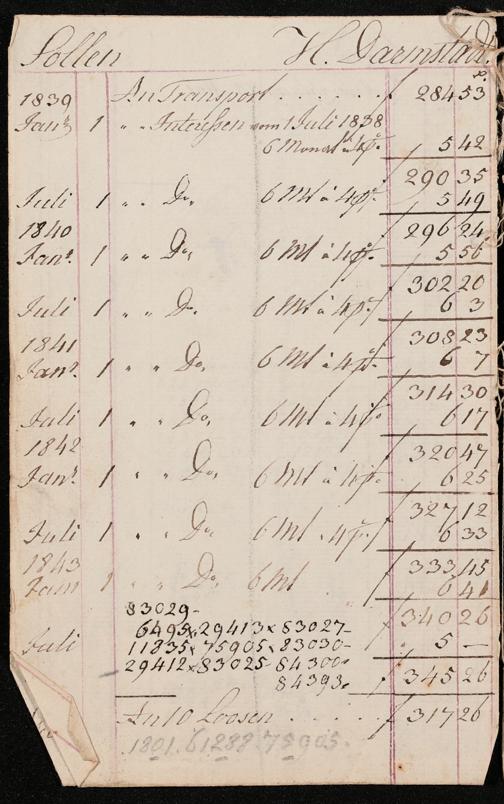 Sollen H. Darmstadt
An Transport . . . . . . f 284 53
1839
Janr 1 " " Interessen vom 1 Juli 1838
6 Monat à 4 p. 5 42
f 290 35
Juli 1 " " Do 6 Mt à 4 p. 5 49
1840 f 296 24
Janr. 1 " " Do, 6 Mt à 4 p. 5 56
f 302 20
Juli 1 " " Do. 6 Mt à 4 p. 6 3
1841 f 308 23
Janr. 1 " " Do, 6 Mt à 4 p. 6 7
f 314 30
Juli 1 " " Do, 6 Mt à 4 p. 6 17
1842 f 320 47
Janr. 1 " " Do, 6 Mt à 4 p. 6 25
f 327 12
Juli 1 " " Do, 6 Mt à 4 p. 6 33
1843 f 333 45
Janr 1 " " Do, 6 Mt 6 41
83029 - f 340 26
6495 x 29413 x 83027 -
Juli 11835 x 75905 x 83030 - " 5 —
29412 x 83025 - 84300 -
f 345 26
84393
An 10 Loosen . . . . . f 317 26
1801. 61288. 75905.